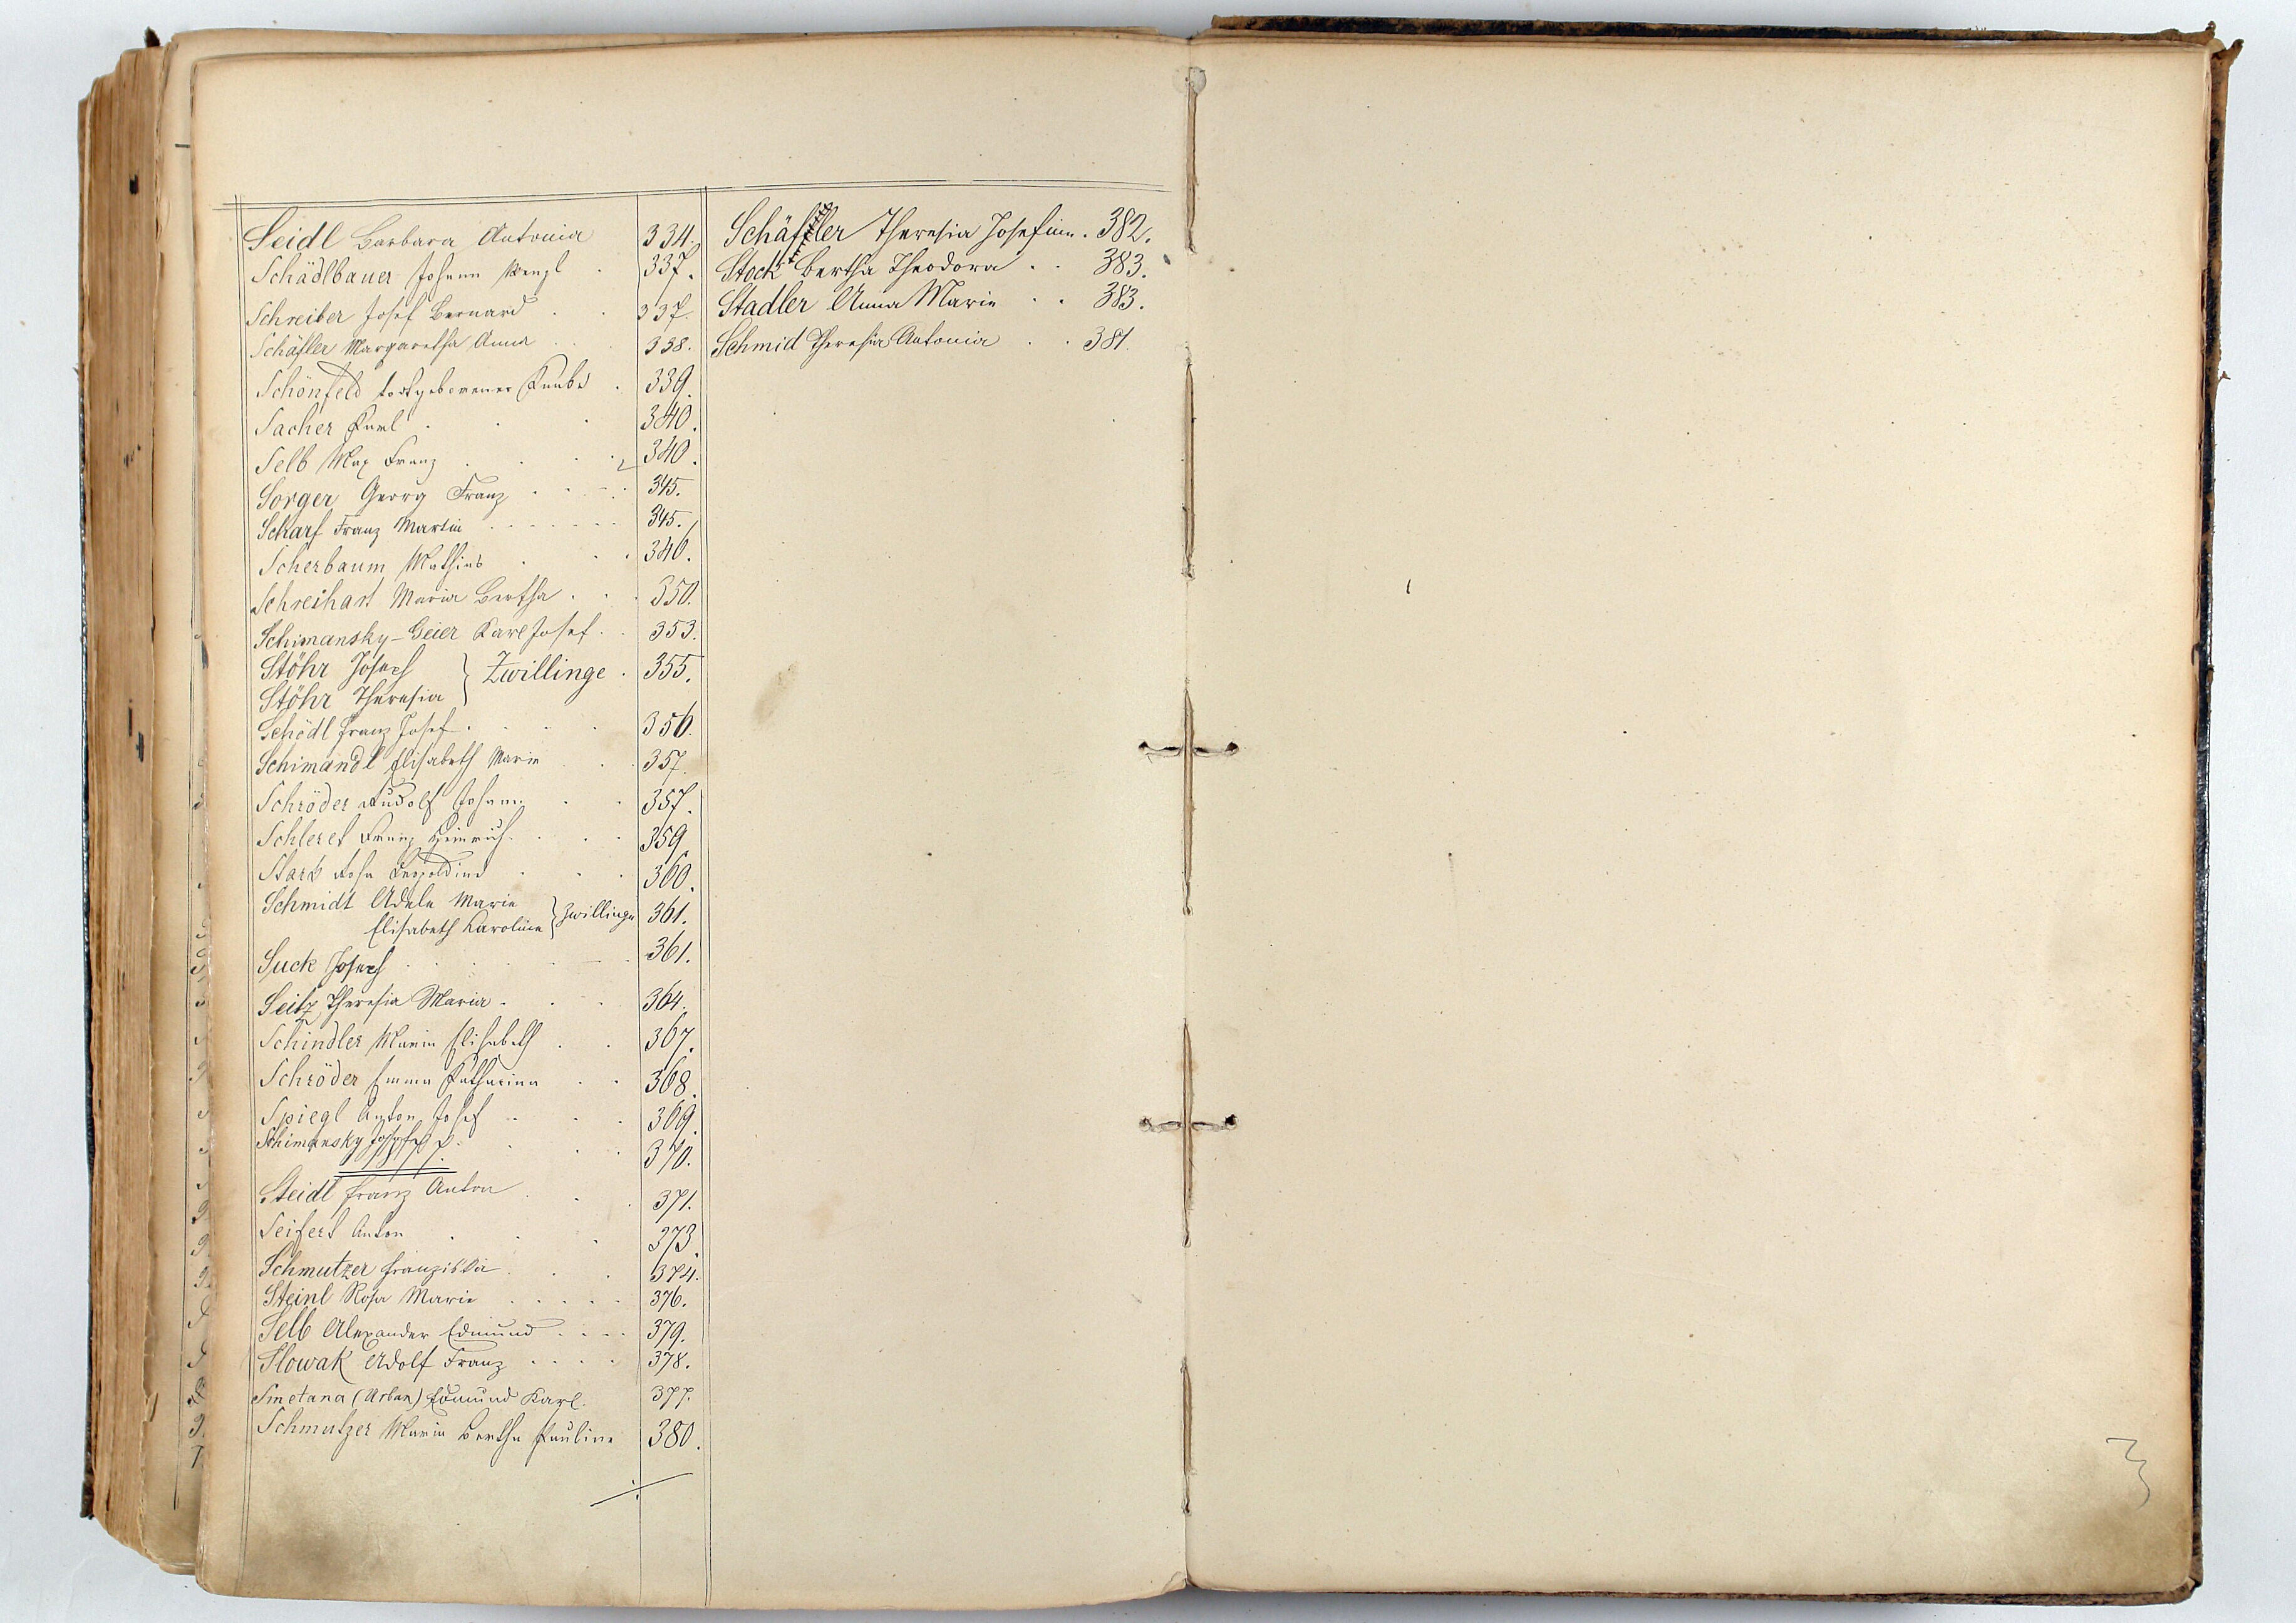 Seidl Barbara Antonia 334.
Schädlbauer Johann Wenzl . 337.
Schreiber Josef Bernard . . 337.
Schäfler Margaretha Anna . . 338.
Schönfeld todtgeborener Knabe . 339.
Sacher Karl . . . 340.
Selb Max Franz . . . . 340.
Sorger Georg Franz . . - . 345.
Scharf Franz Martin . . . . . . . 345.
Scherbaum Mathias . . . 346.
Schreihart Maria Bertha . . . 350.
Schimansky-Geier Karl Josef . . 353.
Stöhr Josef } Zwillinge . 355.
Stöhr Theresia
Schödl Franz Josef . . . . 356.
Schimandl Elisabeth Marie . . 357.
Schröder Rudolf Johann . . 357.
Schleret Franz Heinrich . . . . 359.
Stark Rosa Leopoldine . . . 360.
Schmidt Adele Marie
Elisabeth Karoline } Zwillinge 361.
Suck Josef . . . . . . 361.
Seitz Theresia Maria . . . 364.
Schindler Maria Elisabeth . . 367.
Schröder Emma Katharina . . 368.
Spiegl Anton Josef . . . 369.
Schimansky . . . 370.
Steidl Franz Anton . . . 371.
Seifert Anton . . . 373.
Schmutzer Franziska . . . 374.
Steinl Rosa Marie . . . . . 376.
Selb Alexander Edmund . . . . 379.
Slowak Adolf Franz . . . . 378.
Smetana (Urban) Edmund Karl. 377.
Schmutzer Maria Bertha Pauline 380.
Schäffler Theresia Josefine . 382.
Stock Bertha Theodora . . 383.
Stadler Anna Marie . . 383.
Schmid Theresia Antonia . . 381.